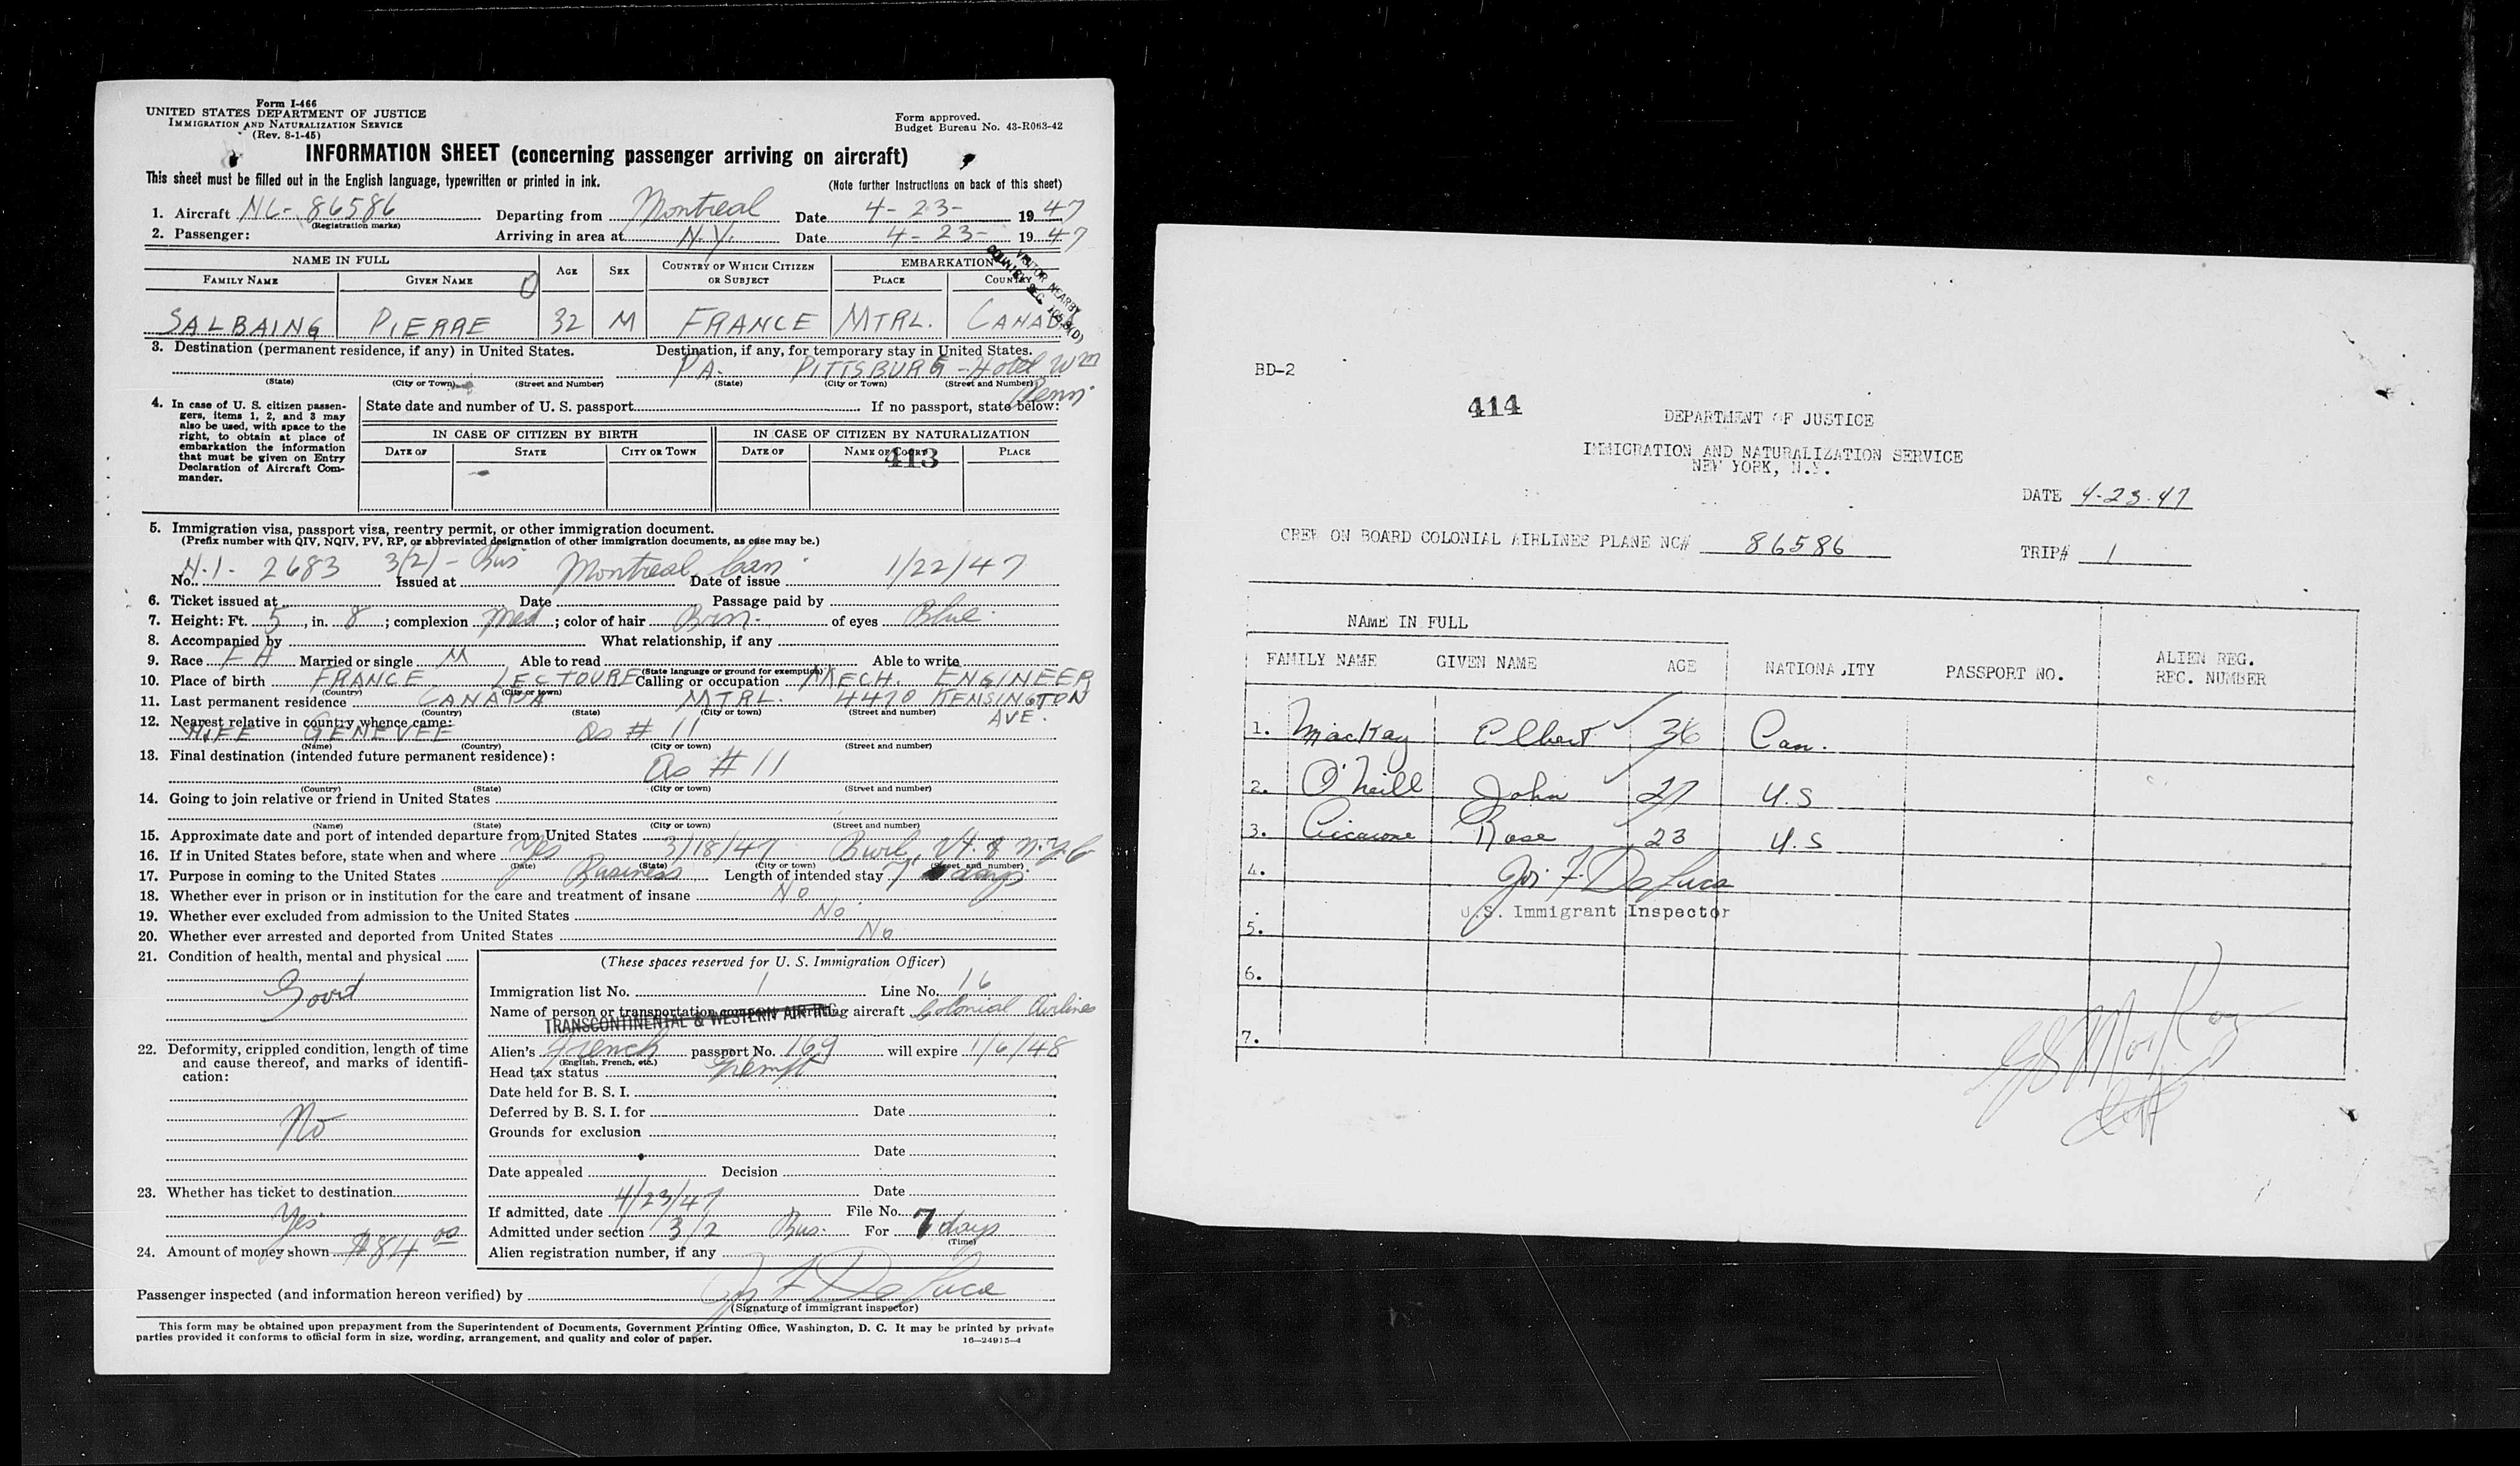 Form I-466
UNITED STATES DEPARTMENT OF JUSTICE
IMMIGRATION AND NATURALIZATION SERVICE
(Rev. 8-1-45)
Form approved.
Budget Bureau No. 43-R063-42
INFORMATION SHEET (concerning passenger arriving on aircraft)
This sheet must be filled out in the English language, typewritten or printed in ink. (Note further instructions on back of this sheet)
1. Aircraft NC-86586 Departing from Montreal Date 4-23- 1947
(Registration marks)
2. Passenger: Arriving in area at N.Y. Date 4-23- 1947
VISITOR NEARBY
COUNTRY SEC.
NAME IN FULL AGE SEX COUNTRY OF WHICH CITIZEN OR SUBJECT EMBARKATION
FAMILY NAME GIVEN NAME PLACE COUNTRY
SALBAING PIERRE 32 M FRANCE MTRL. CANADA
3. Destination (permanent residence, if any) in United States. Destination, if any, for temporary stay in United States.
PA. PITTSBURG - Hotel Wm Penn
(State) (City or Town) (Street and Number) (State) (City or Town) (Street and Number)
4. In case of U. S. citizen passengers, items 1, 2, and 3 may also be used, with space to the right, to obtain at place of embarkation the information that must be given on Entry Declaration of Aircraft Commander.
State date and number of U. S. passport If no passport, state below:
IN CASE OF CITIZEN BY BIRTH IN CASE OF CITIZEN BY NATURALIZATION
DATE OF STATE CITY OR TOWN DATE OF NAME OF COURT PLACE
413
5. Immigration visa, passport visa, reentry permit, or other immigration document.
(Prefix number with QIV, NQIV, PV, RP, or abbreviated designation of other immigration documents, as case may be.)
No. N.I. 2683 3(2) - Bus Issued at Montreal, Can Date of issue 1/22/47
6. Ticket issued at Date Passage paid by
7. Height: Ft. 5, in. 8; complexion Med; color of hair Brn. of eyes Blue
8. Accompanied by What relationship, if any
9. Race Married or single M Able to read Able to write
(State language or ground for exemption)
10. Place of birth FRANCE LECTOURE Calling or occupation MECH. ENGINEER
(Country) (City or town)
11. Last permanent residence CANADA MTRL. 4470 KENSINGTON AVE.
(Country) (State) (City or town) (Street and number)
12. Nearest relative in country whence came:
WIFE GENEVEE as # 11
(Name) (Country) (City or town) (Street and number)
13. Final destination (intended future permanent residence):
As # 11
(Country) (State) (City or town) (Street and number)
14. Going to join relative or friend in United States
(Name) (State) (City or town) (Street and number)
15. Approximate date and port of intended departure from United States
16. If in United States before, state when and where Yes 3/18/47 Burl, Vt. & N.Y.C
(Date) (State) (City or town) (Street and number)
17. Purpose in coming to the United States Business Length of intended stay 7 days
18. Whether ever in prison or in institution for the care and treatment of insane No
19. Whether ever excluded from admission to the United States No
20. Whether ever arrested and deported from United States No
21. Condition of health, mental and physical
Good
22. Deformity, crippled condition, length of time and cause thereof, and marks of identification:
No
23. Whether has ticket to destination
Yes
24. Amount of money shown $84 00
(These spaces reserved for U. S. Immigration Officer)
Immigration list No. 1 Line No. 16
Name of person or transportation company operating aircraft Colonial Airlines
TRANSCONTINENTAL & WESTERN AIR INC
Alien's French passport No. 169 will expire 1/6/48
(English, French, etc.)
Head tax status Exempt
Date held for B. S. I.
Deferred by B. S. I. for Date
Grounds for exclusion
Date
Date appealed Decision
Date
If admitted, date 4/23/47 File No.
Admitted under section 3/2 Bus. For 7 days
(Time)
Alien registration number, if any
Passenger inspected (and information hereon verified) by Jos F De Luca
(Signature of immigrant inspector)
This form may be obtained upon prepayment from the Superintendent of Documents, Government Printing Office, Washington, D. C. It may be printed by private
parties provided it conforms to official form in size, wording, arrangement, and quality and color of paper. 16-24915-4
BD-2
414
DEPARTMENT OF JUSTICE
IMMIGRATION AND NATURALIZATION SERVICE
NEW YORK, N.Y.
DATE 4-23-47
CREW ON BOARD COLONIAL AIRLINES PLANE NC# 86586 TRIP# 1
NAME IN FULL
FAMILY NAME GIVEN NAME AGE NATIONALITY PASSPORT NO. ALIEN REG. REC. NUMBER
1. MacKay Elbert 36 Can.
2. O'Neill John 27 U.S
3. Ciccarone Rose 23 U.S
4. Jos. F. De Luca
U.S. Immigrant Inspector
5.
6.
7.